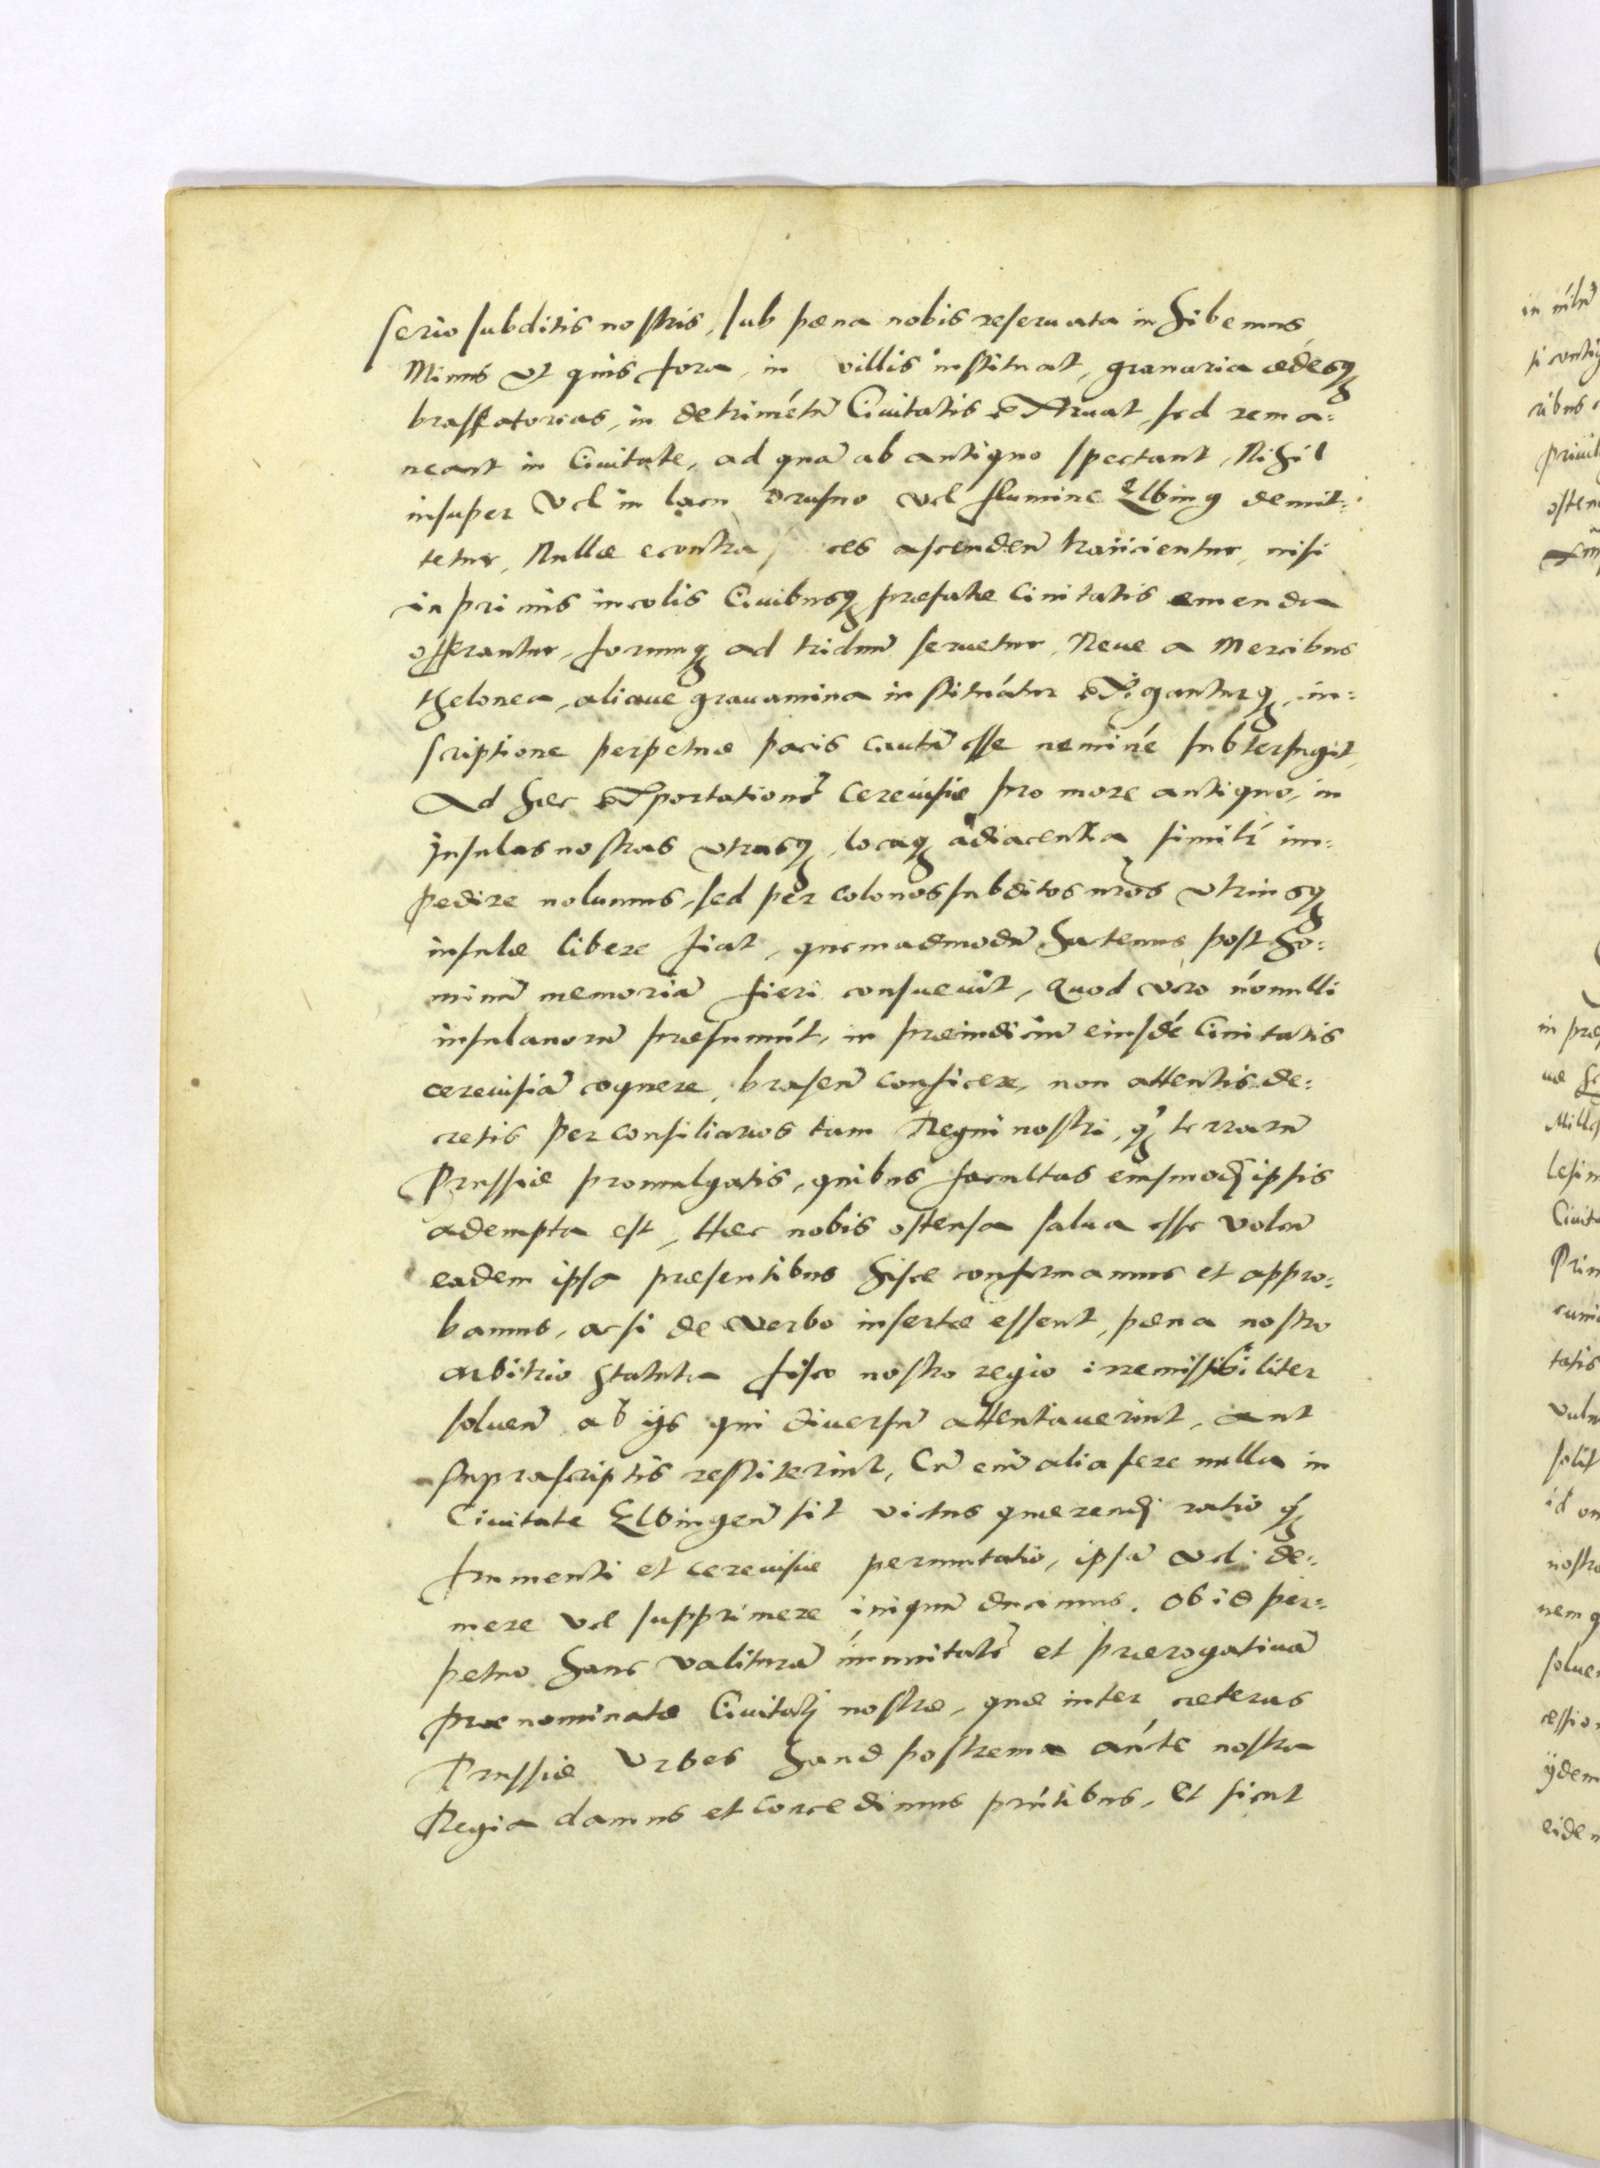 serio subditis nostris, sub pœna nobis reseruata inhibemus,
Minus vt quis fora, in villis instituat, granaria ædesq₃
brassatorias, in detrimẽtũ Ciuitatis extruat, sed rema⸗
neant in Ciuitate, ad quã ab antiquo spectant, Nihil
insuper vel in lacu Drusno vel flumine Elbing demit⸗
tetur, Nullæ econtra ascendeñ traiicientur, nisi
inprimis incolis Ciuibusq₃ præfatæ Ciuitatis emendæ
offerantur, forumq₃ ad triduũ seruetur, Neue a Mercibus
thelonea, aliaue grauamina instituãtur exiganturq₃, in⸗
scriptione perpetuæ pacis cautũ esse neminẽ subterfugit,
Ad hæc exportationẽ Cereuisiæ pro more antiquo, in
Insulas nostras vtrasq₃, locaq₃ adiacentia similr̃ im⸗
pedire nolumus, sed per colonos subditos nr̃os vtriusq₃
insulæ libere fiat, quemadmodũ hactenus post ho⸗
minũ memoriã fieri consueuit, Quod vero nõnulli
insulanorũ præsumũt, in præiudiciũ eiusdẽ Ciuitatis
cereuisiã coquere, braseũ conficere, non attentis de⸗
cretis per consiliarios tam Regni nostri, q̃₃ terrarũ
Prussiæ promulgatis, quibus facultas eiusmodj ipsis
adempta est, Hæc nobis ostensa salua esse volen̄
eadem ipsa præsentibus hisce confirmamus et appro⸗
bamus, acsi de verbo insertæ essent, pœna nostro
arbitrio statuta fisco nostro regio irremissibiliter
soluen̄ ab ijs qui diuersũ attentauerint, aut
suprascriptis restiterint, Cũ eñi alia fere nulla in
Ciuitate Elbingen̄ sit victus quærendj ratio q̃₃
frumenti et cereuisiæ permutatio, ipsã vel de⸗
mere vel supprimere iniquũ ducimus. Ob id per⸗
petuo hanc valiturã im̃unitatẽ et prærogatiuã
prænominatæ Ciuitatj nostræ, quæ inter cæteras
Prussiæ Vrbes haud postrema, aũcte nostra
Regia damus et concedimus pr̃ntibus, Et sicut